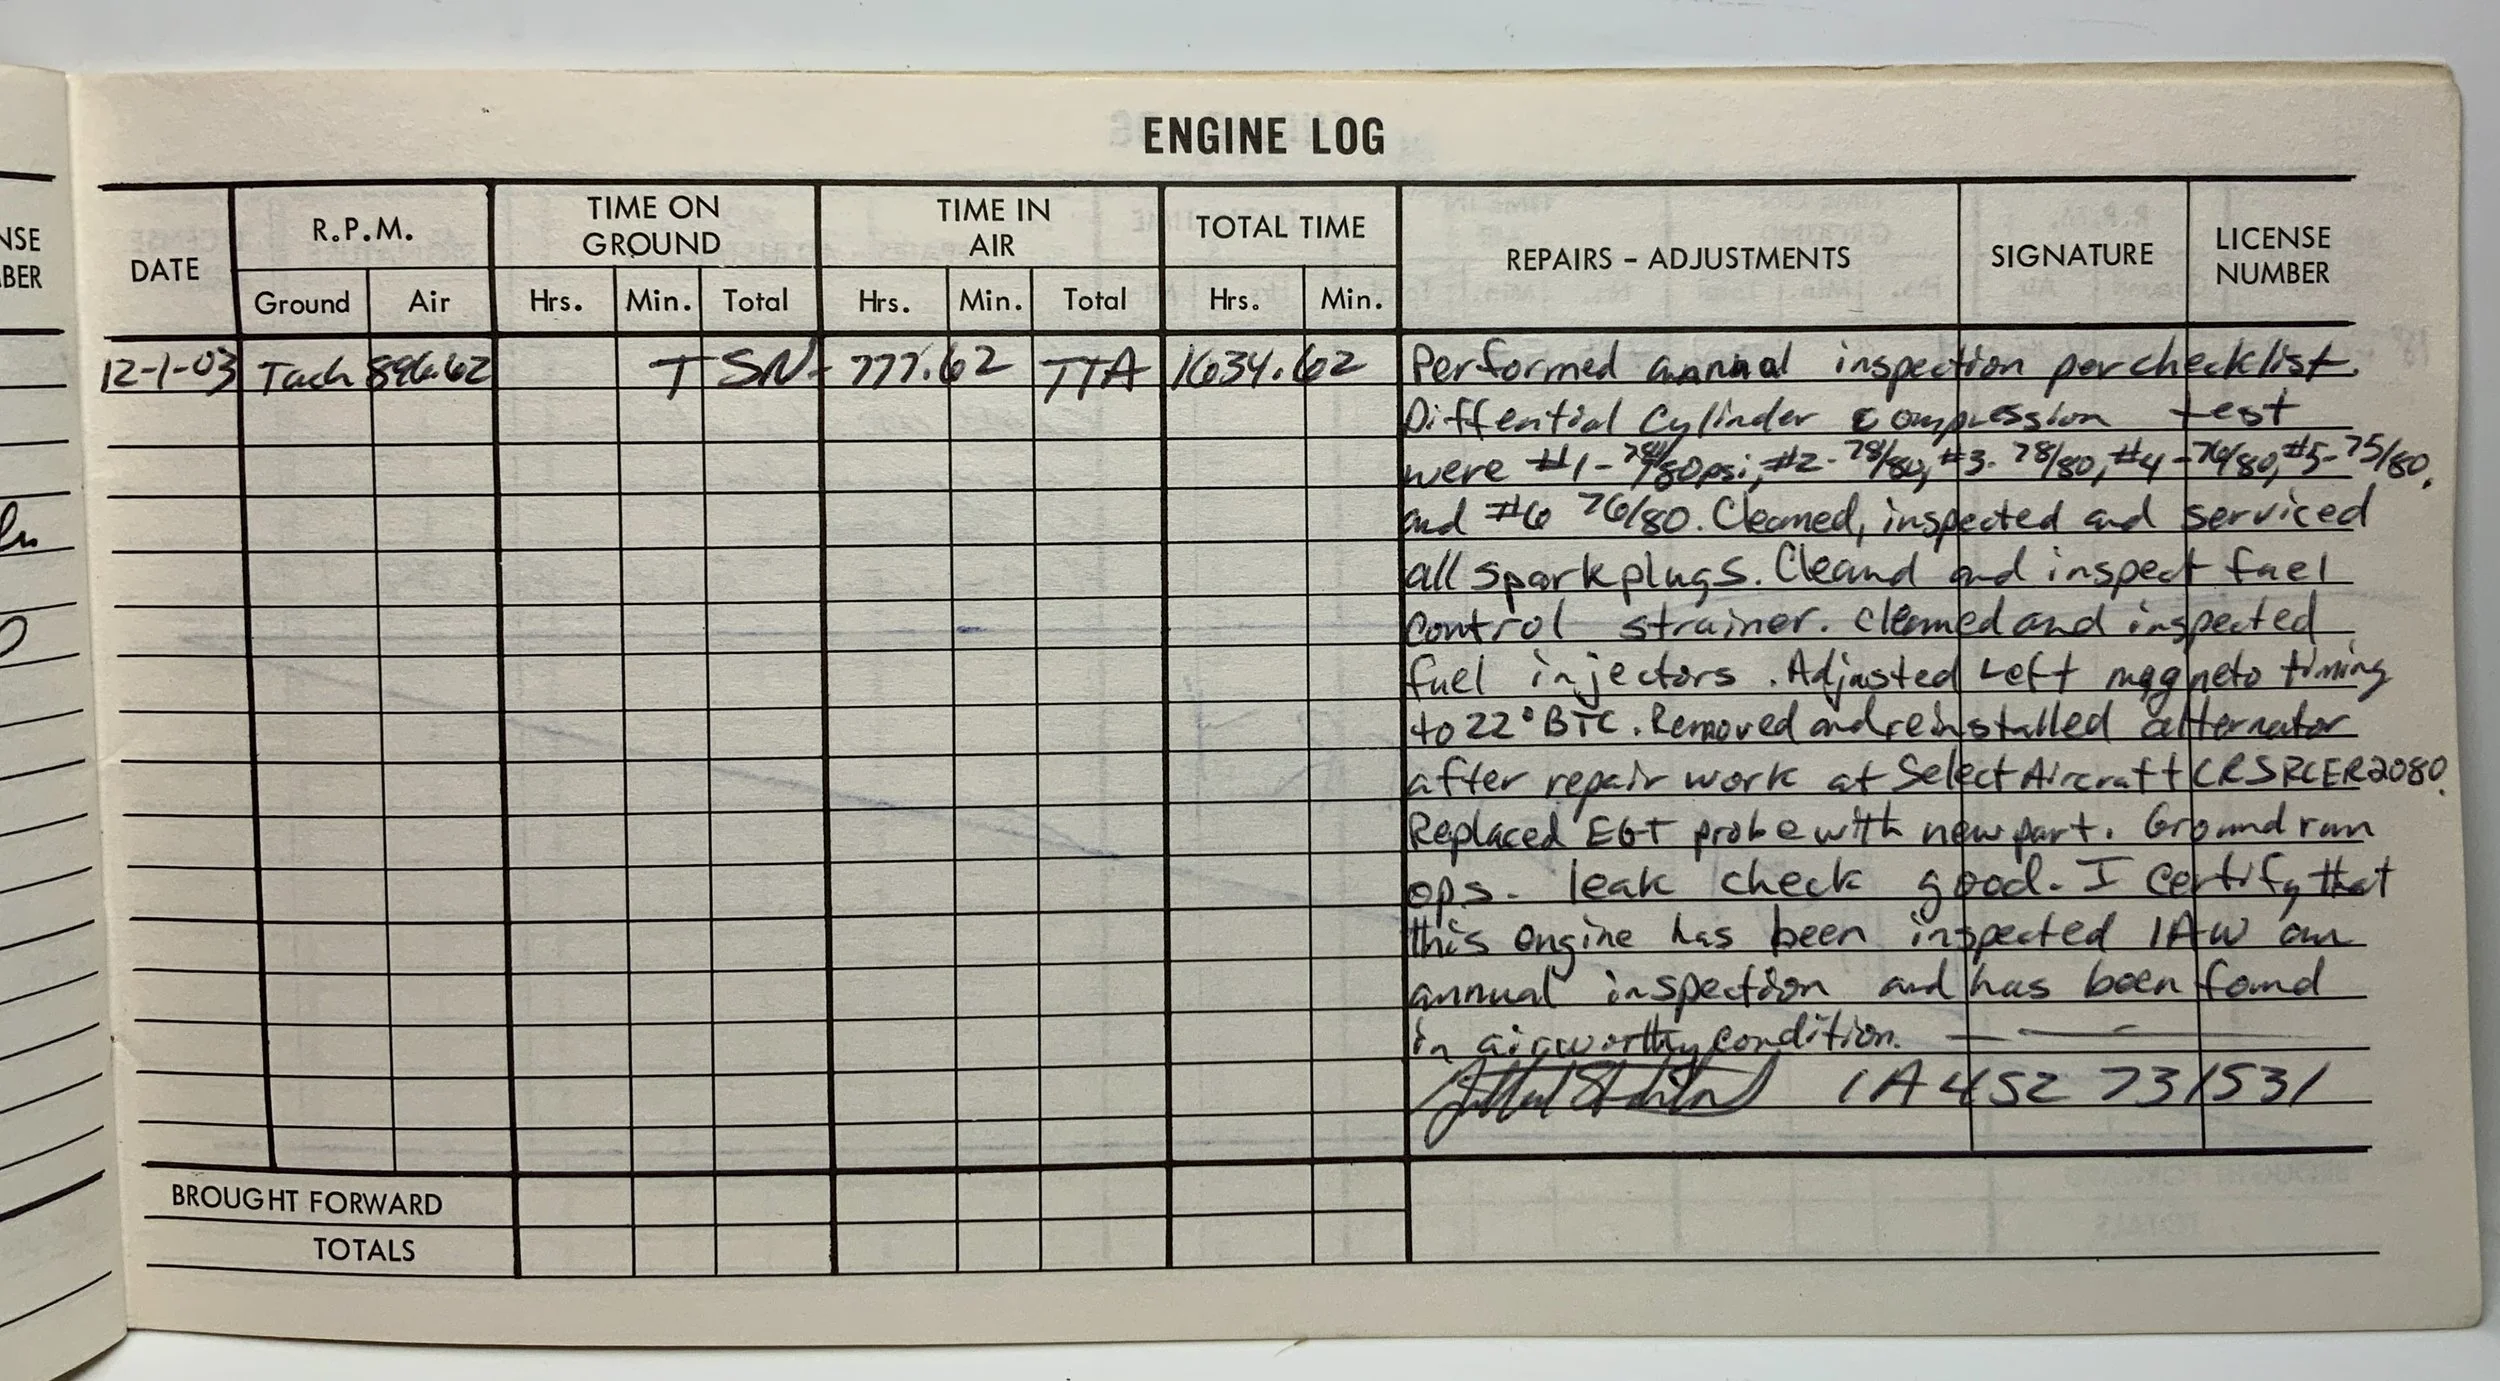 NSE
BER
ENGINE LOG
DATE
R.P.M.
Ground Air
TIME ON
GROUND
Hrs. Min. Total
TIME IN
AIR
Hrs. Min. Total
TOTAL TIME
Hrs. Min.
REPAIRS - ADJUSTMENTS
SIGNATURE
LICENSE
NUMBER
12-1-03 Tach 896.62 TSN- 777.62 TTA 1634.62 Performed annual inspection per checklist.
Diffential Cylinder compression test
were #1- 78/80psi, #2- 78/80, #3- 78/80, #4 -76/80, #5-75/80,
and #6 76/80. Cleaned, inspected and serviced
all sparkplugs. Cleand and inspect fuel
control strainer. Cleaned and inspected
fuel injectors. Adjusted Left magneto timing
to 22° BTC. Removed and reinstalled alternator
after repair work at Select Aircraft CRS RCER2080.
Replaced EGT probe with new part. Ground run
ops. leak check good. I certify that
this engine has been inspected IAW an
annual inspection and has been found
in airworthy condition.
IA 452 731531
BROUGHT FORWARD
TOTALS